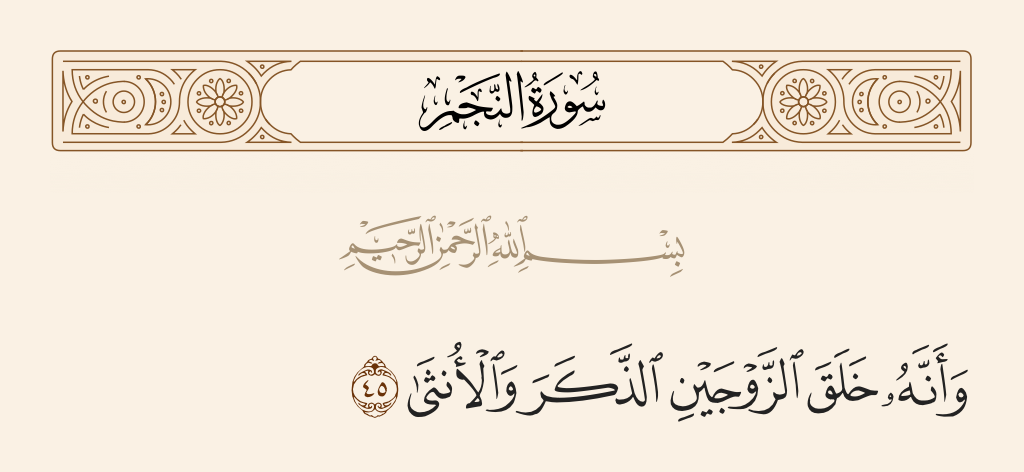 سُورَةُ النَّجْمِ
بِسْمِ ٱللَّهِ ٱلرَّحْمَٰنِ ٱلرَّحِيمِ
وَأَنَّهُۥ خَلَقَ ٱلزَّوْجَيْنِ ٱلذَّكَرَ وَٱلْأُنثَىٰ ٤٥